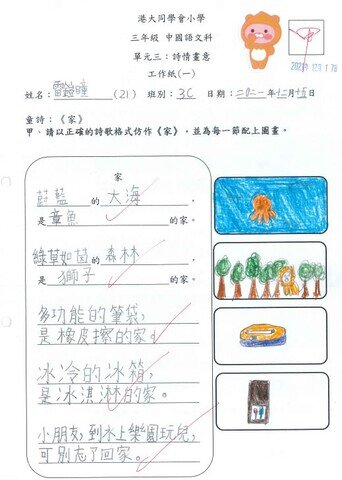 港大同學會小學
三年級 中國語文科
單元三：詩情畫意
工作紙(一)
姓名： (21) 班別：3C 日期：二〇二一年十二月十五日
童詩：《家》
甲、請以正確的詩歌格式仿作《家》，並為每一節配上圖畫。
家
蔚藍的大海
是章魚的家。
綠草如茵的森林
是獅子的家。
多功能的筆袋，
是橡皮擦的家。
冰冷的冰箱，
是冰淇淋的家。
小朋友，到水上樂園玩兒，
可別忘了回家。